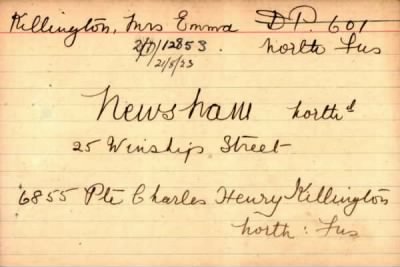 Killington, Mrs Emma D P. 601
2/D/12853. North Fus
21/5/23
Newsham North d
25 Winship Street
6855 Pte Charles Henry Killington
North: Fus